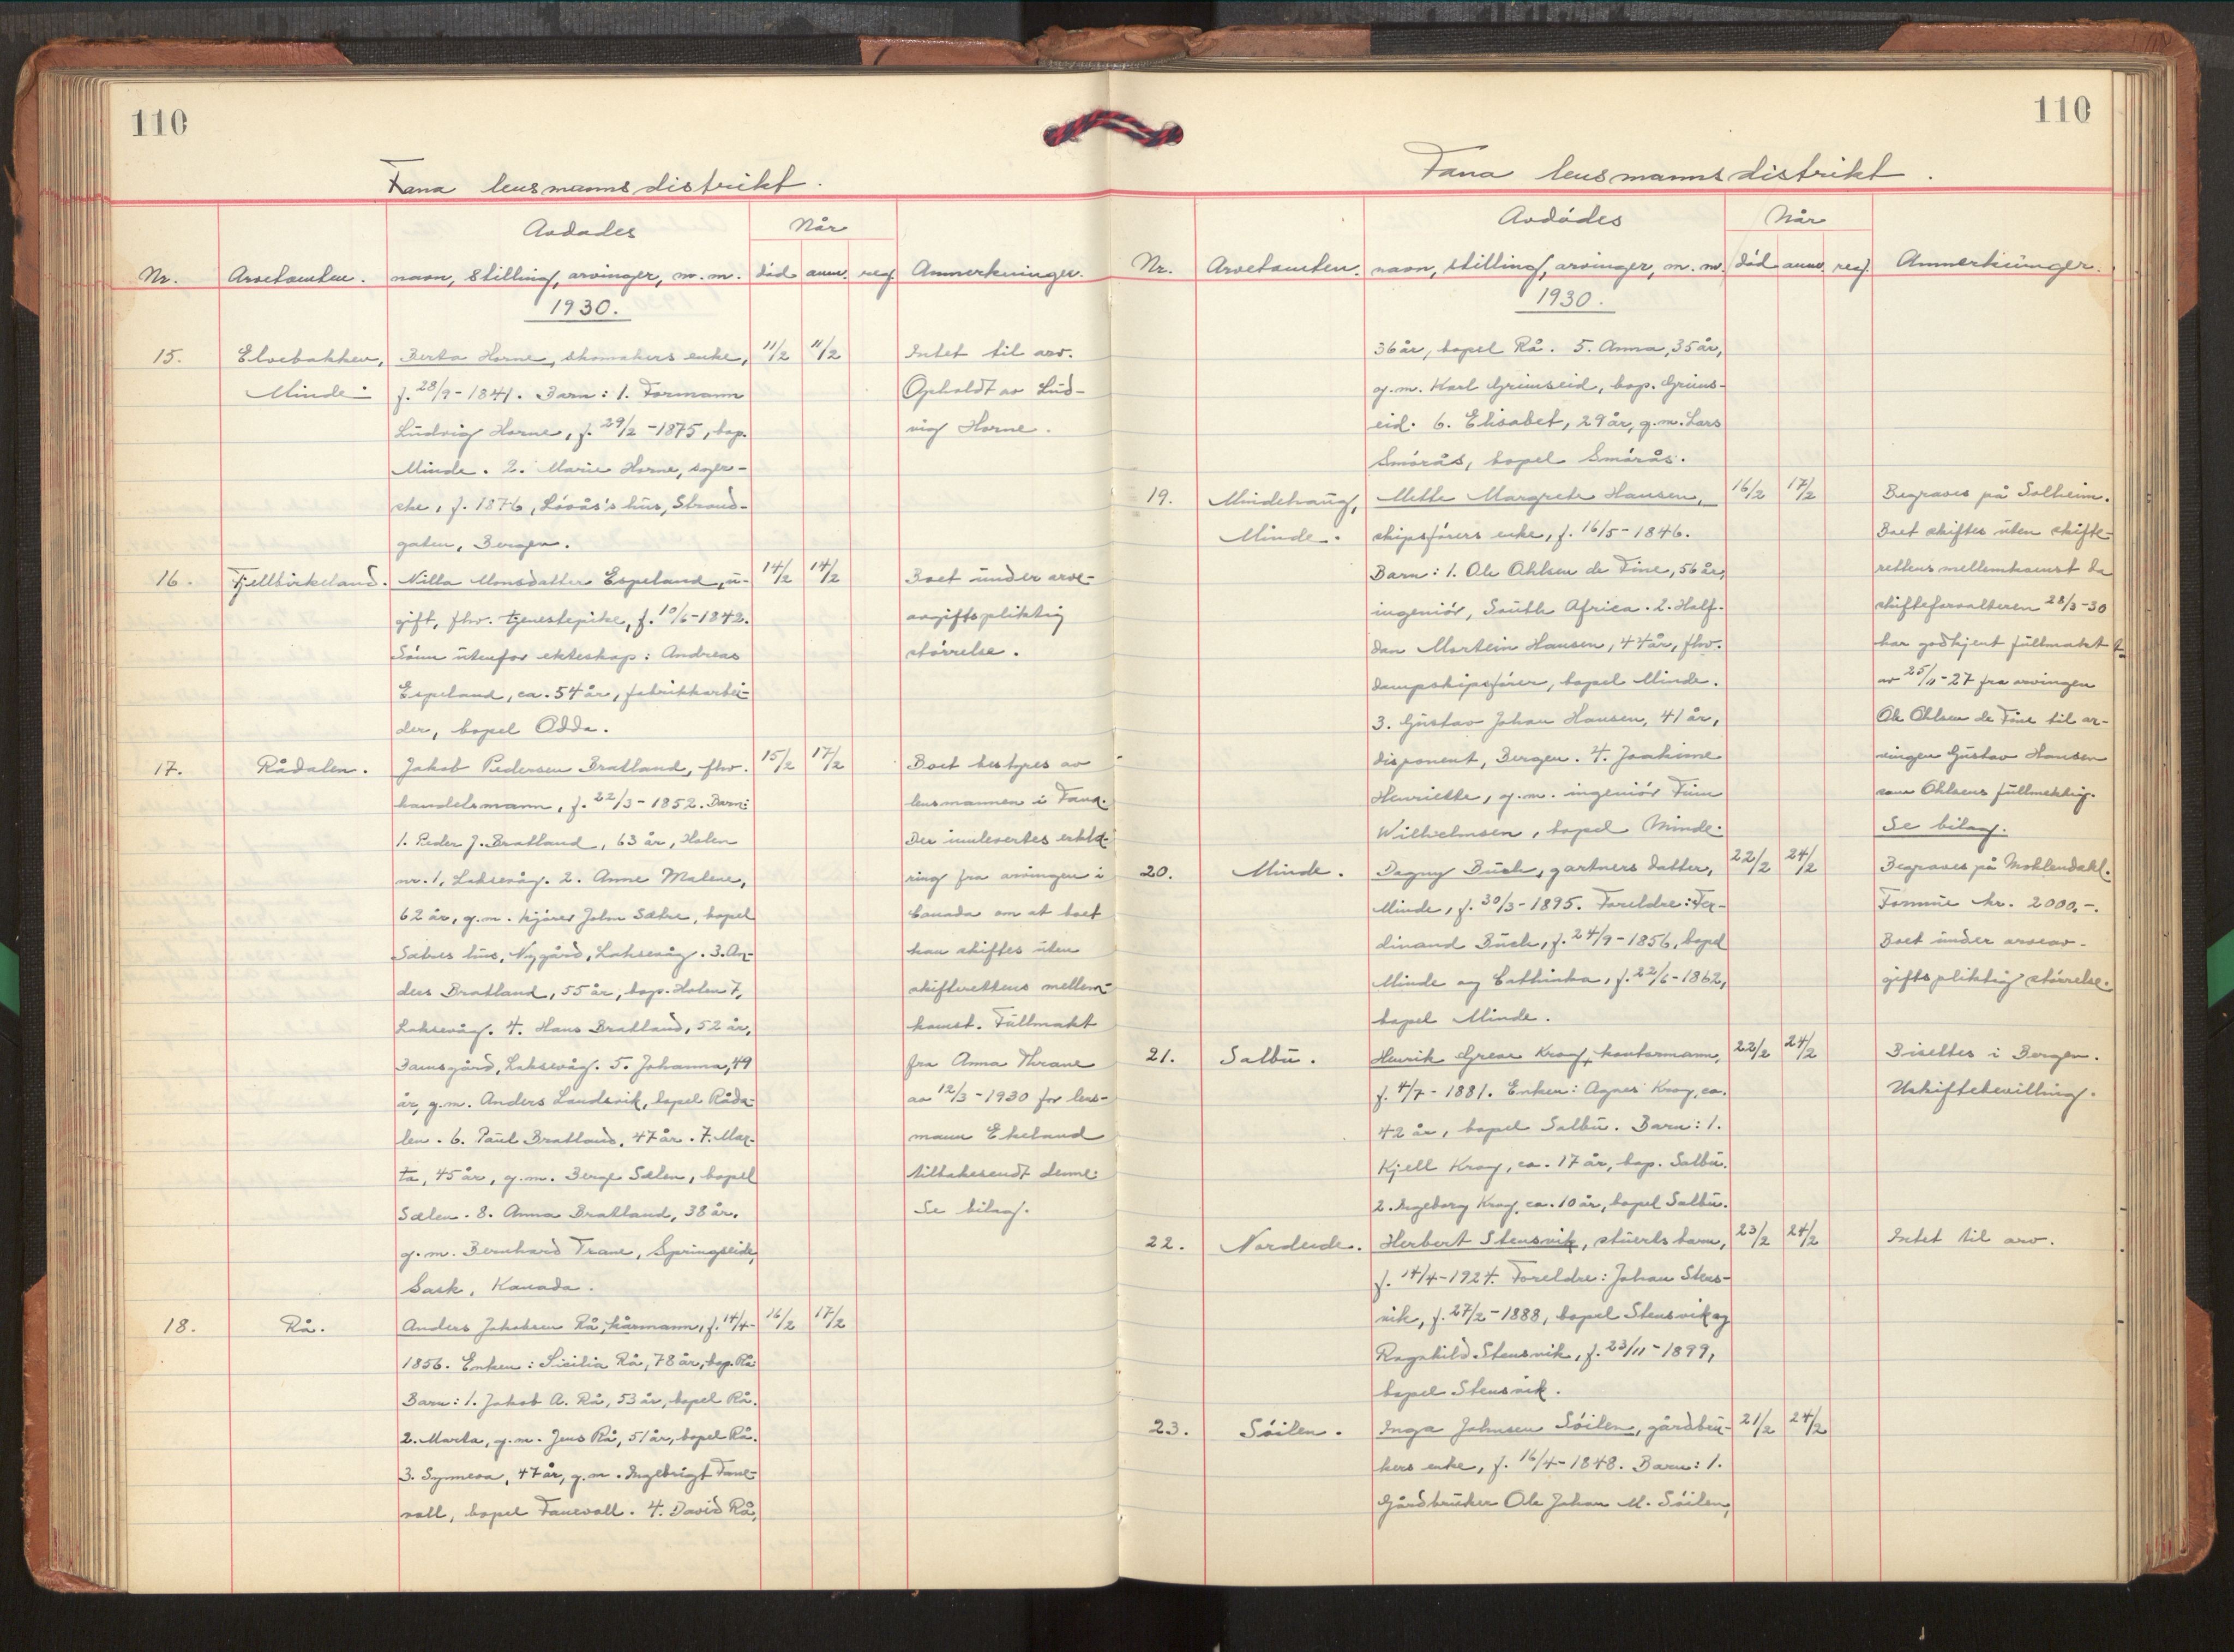 110
Fana lensmannsdistrikt.
Avdødes
Når
Nr. Arvetomten. navn, stilling, arvinger, m. m. død anm. reg. Anmerkninger.
1930.
15. Elvebakken, Berta Horne, skomakers enke, 11/2 11/2 Intet til arv.
Minde. f. 28/9-1841. Barn: 1. Formann Opholdt av Lud-
Ludvig Horne, f. 29/2-1875, bop. vig Horne.
Minde. 2. Marie Horne, syer-
ske, f. 1876, Lóvås's hus, Strand-
gaten, Bergen.
16. Fjellbirkeland. Nilla Monsdatter Espeland, u- 14/2 14/2 Boet under arve-
gift, fhv. tjenestepike, f. 10/6-1842. avgiftspliktig
Sónn utenfor ekteskap: Andreas stórrelse.
Espeland, ca. 54 år, fabrikkarbei-
der, bopel Odda.
17. Rådalen. Jakob Pedersen Bratland, fhv. 15/2 17/2 Boet bestyres av
handelsmann, f. 22/3-1852. Barn: lensmannen i Fana.
1. Peder J. Bratland, 63 år, Holen Der innlevertes erklæ-
nr. 1, Laksevåg. 2. Anne Malene, ring fra arvingen i
62 år, g.m. kjører John Sætre, bopel Canada om at boet
Sætres hus, Nygård, Laksevåg. 3. An- kan skiftes uten
ders Bratland, 55 år, bop. Holen 7, skifterettens mellem-
Laksevåg. 4. Hans Bratland, 52 år, komst. Fullmakt
Damsgård, Laksevåg. 5. Johanna, 49 fra Anna Thrane
år, g.m. Anders Landsvik, bopel Råda- av 12/3-1930 for lens-
len. 6. Paul Bratland, 47 år. 7. Mar- mann Ekeland
ta, 45 år, g.m. Berge Sælen, bopel tilbakesendt denne.
Sælen. 8. Anna Bratland, 38 år, Se bilag.
g.m. Bernhard Trane, Springseide,
Sask, Kanada.
18. Rå. Anders Jakobsen Rå, kårmann, f. 14/4- 16/2 17/2
1856. Enken: Sicilia Rå, 78 år, bop. Rå.
Barn: 1. Jakob A. Rå, 53 år, bopel Rå.
2. Marta, g.m. Jens Rå, 51 år, bopel Rå.
3. Synneva, 47 år, g.m. Ingebrigt Fane-
voll, bopel Fanevoll. 4. David Rå,
110
Fana lensmannsdistrikt.
Avdódes
Når
Nr. Arvetomten. navn, stilling, arvinger, m. m. død anm. reg. Anmerkninger.
1930.
36 år, bopel Rå. 5. Anna, 35 år,
g.m. Karl Grimseid, bop. Grims-
eid. 6. Elisabet, 29 år, g.m. Lars
Smórås, bopel Smórås.
19. Mindehaug, Mette Margrete Hansen, 16/2 17/2 Begraves på Solheim.
Minde. skipsfórers enke, f. 16/5-1846. Boet skiftes uten skifte-
Barn: 1. Ole Ohlsen de Fine, 56 år, rettens mellemkomst da
ingeniór, South Africa. 2. Half- skifteforvalteren 28/3-30
dan Mortein Hansen, 44 år, fhv. har godkjent fullmakt
dampskipsfórer, bopel Minde. av 25/11-27 fra arvingen
3. Gustav Johan Hansen, 41 år, Ole Ohlsen de Fine til ar-
disponent, Bergen. 4. Joakime vingen Gustav Hansen
Henriette, g.m. ingeniór Finn som Ohlsens fullmektig.
Wilhelmsen, bopel Minde. Se bilag.
20. Minde. Dagny Buch, gartners datter, 22/2 24/2 Begraves på Mohlendahl.
Minde, f. 30/3-1895. Foreldre: Fer- Formue kr. 2000,-.
dinand Buch, f. 24/9-1856, bopel Boet under arveav-
Minde og Cathinka, f. 22/6-1862, giftspliktig stórrelse.
bopel Minde.
21. Salbu. Henrik Greve Krag, kontormann, 22/2 24/2 Biseltes i Bergen.
f. 4/7-1881. Enken: Agnes Krag, ca. Uskiftebevilling.
42 år, bopel Salbu. Barn: 1.
Kjell Krag, ca. 17 år, bop. Salbu.
2. Ingeborg Krag, ca. 10 år, bopel Salbu.
22. Nordeide. Herbert Stensvik, stuerts barn, 23/2 24/2 Intet til arv.
f. 14/4-1924. Foreldre: Johan Stens-
vik, f. 27/2-1888, bopel Stensvik og
Ragnhild Stensvik, f. 23/11-1899,
bopel Stensvik.
23. Sóilen. Inga Johnsen Sóilen, gårdbru- 21/2 24/2
kers enke, f. 16/4-1848. Barn: 1.
Gårdbruker Ole Johan M. Sóilen,